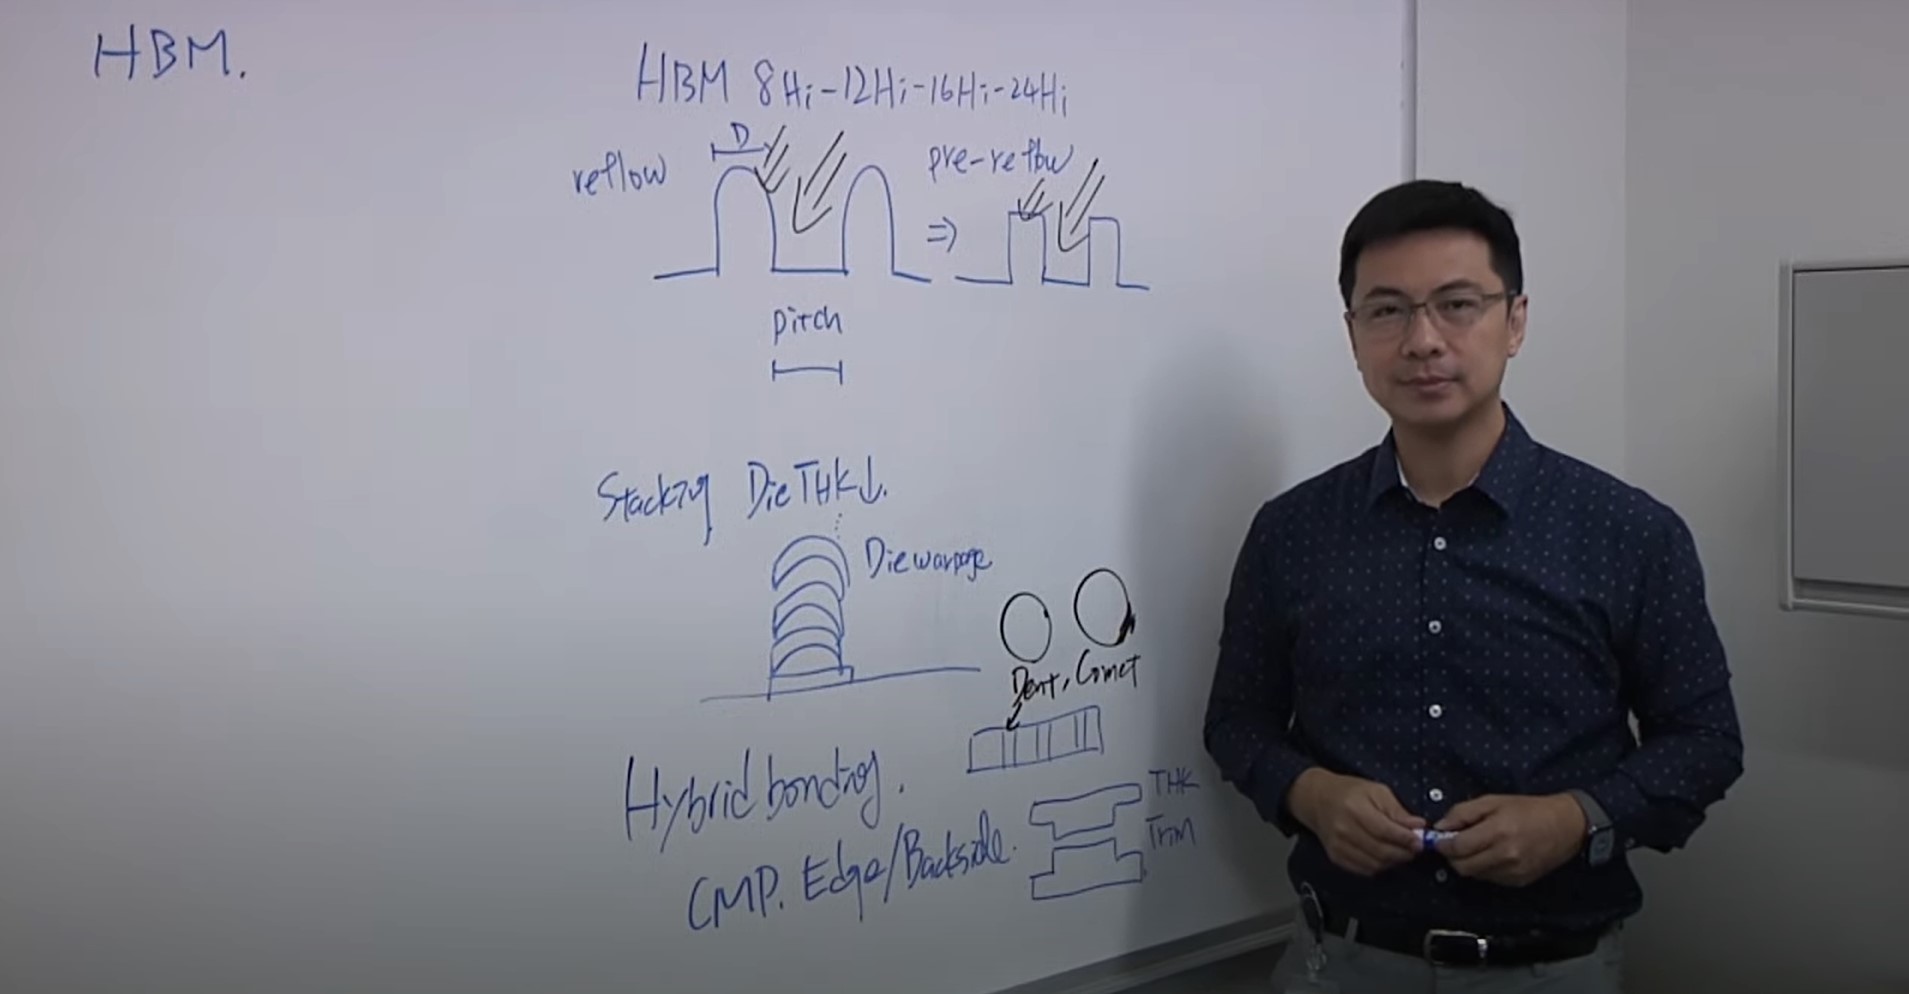 HBM.
HBM 8Hi-12Hi-16Hi-24Hi
D
reflow
pre-reflow
⇒
pitch
Stacking Die THK↓.
Die warpage
Dent, Comet
Hybrid bonding.
THK
Trim
CMP. Edge/Backside.